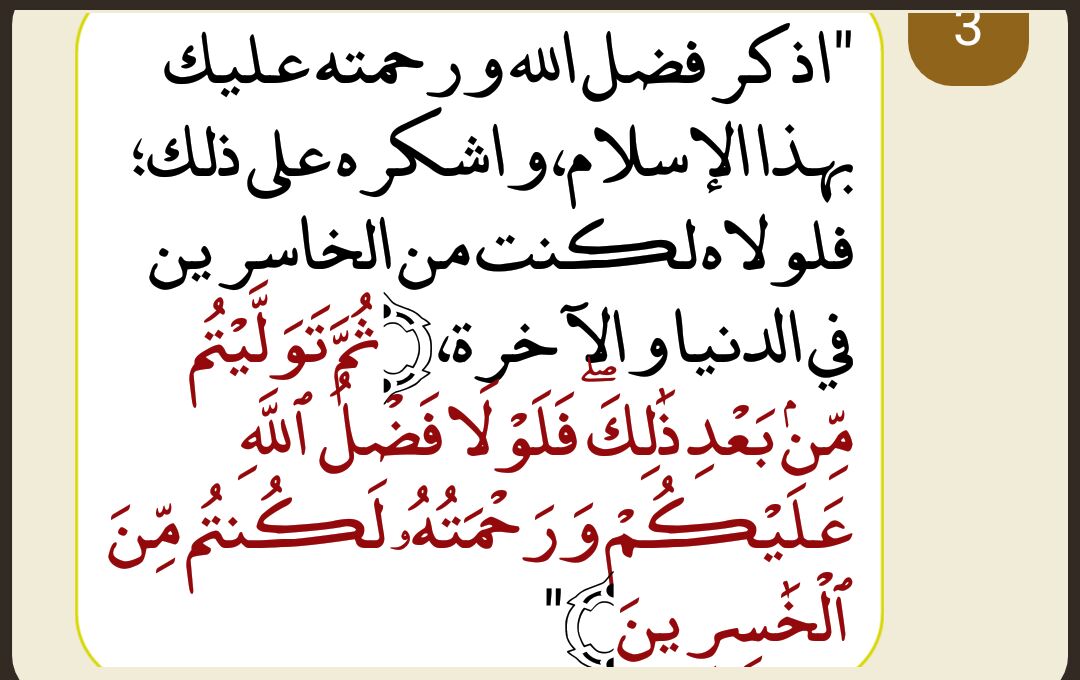 3
"اذكر فضل الله ورحمته عليك
بهذا الإسلام، واشكره على ذلك؛
فلولاه لكنت من الخاسرين
في الدنيا والآخرة، ﴿ثُمَّ تَوَلَّيْتُم
مِّنۢ بَعْدِ ذَٰلِكَ ۖ فَلَوْلَا فَضْلُ ٱللَّهِ
عَلَيْكُمْ وَرَحْمَتُهُۥ لَكُنتُم مِّنَ
ٱلْخَٰسِرِينَ﴾"